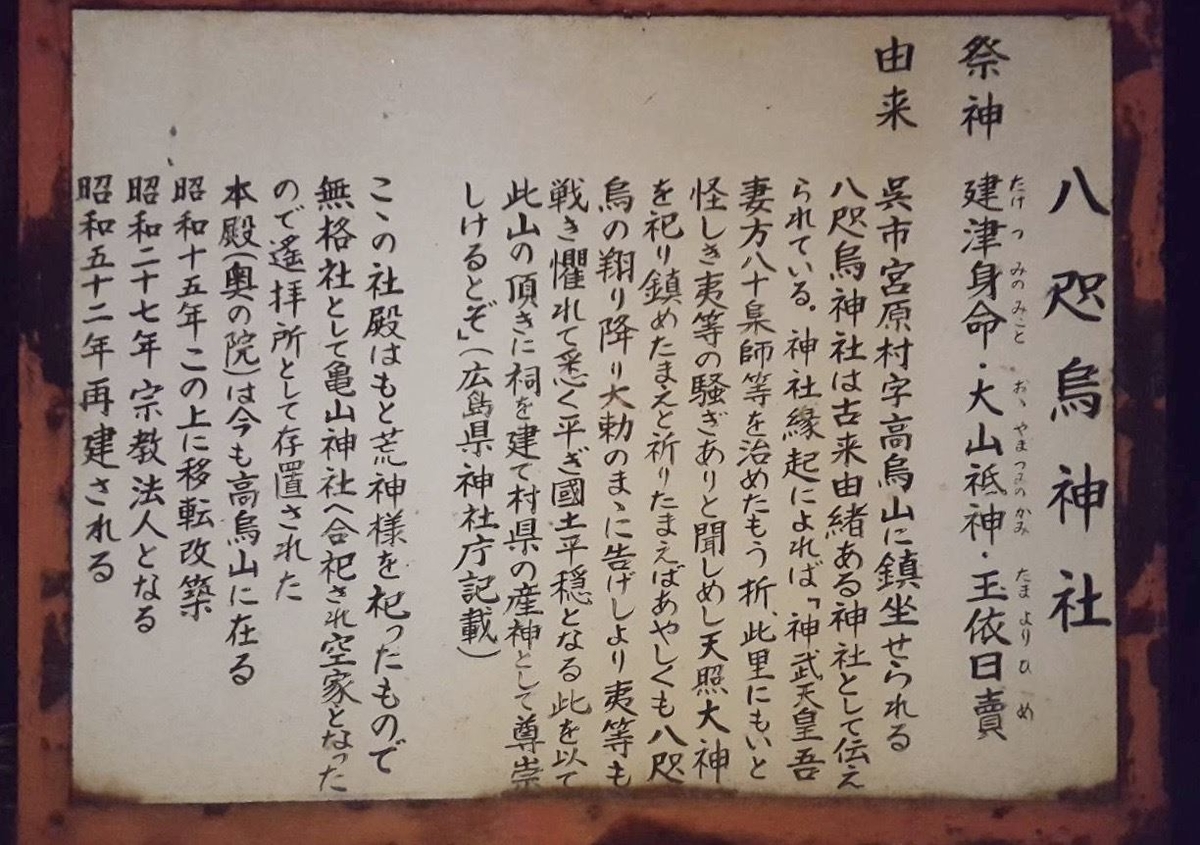 八咫烏神社
祭神 建津身命・大山祗神・玉依日賣
たけつみのみこと おゝやまつみのかみ たまよりひめ
由来 呉市宮原村字高烏山に鎮坐せられる
八咫烏神社は古来由緒ある神社として伝え
られている。神社縁起によれば「神武天皇吾
妻方八十梟師等を治めたもう折、此里にもいと
怪しき夷等の騒ぎありと聞しめし天照大神
を祀り鎮めたまえと祈りたまえばあやしくも八咫
烏の翔り降り大勅のまゝに告げしより夷等も
戦き懼れて悉く平ぎ國土平穏となる此を以て
此山の頂きに祠を建て村県の産神として尊崇
しけるとぞ」(広島県神社庁記載)
こゝの社殿はもと荒神様を祀ったもので
無格社として亀山神社へ合祀され空家となった
ので遙拝所として存置された
本殿(奥の院)は今も高烏山に在る
昭和十五年この上に移転改築
昭和二十七年宗教法人となる
昭和五十二年再建される